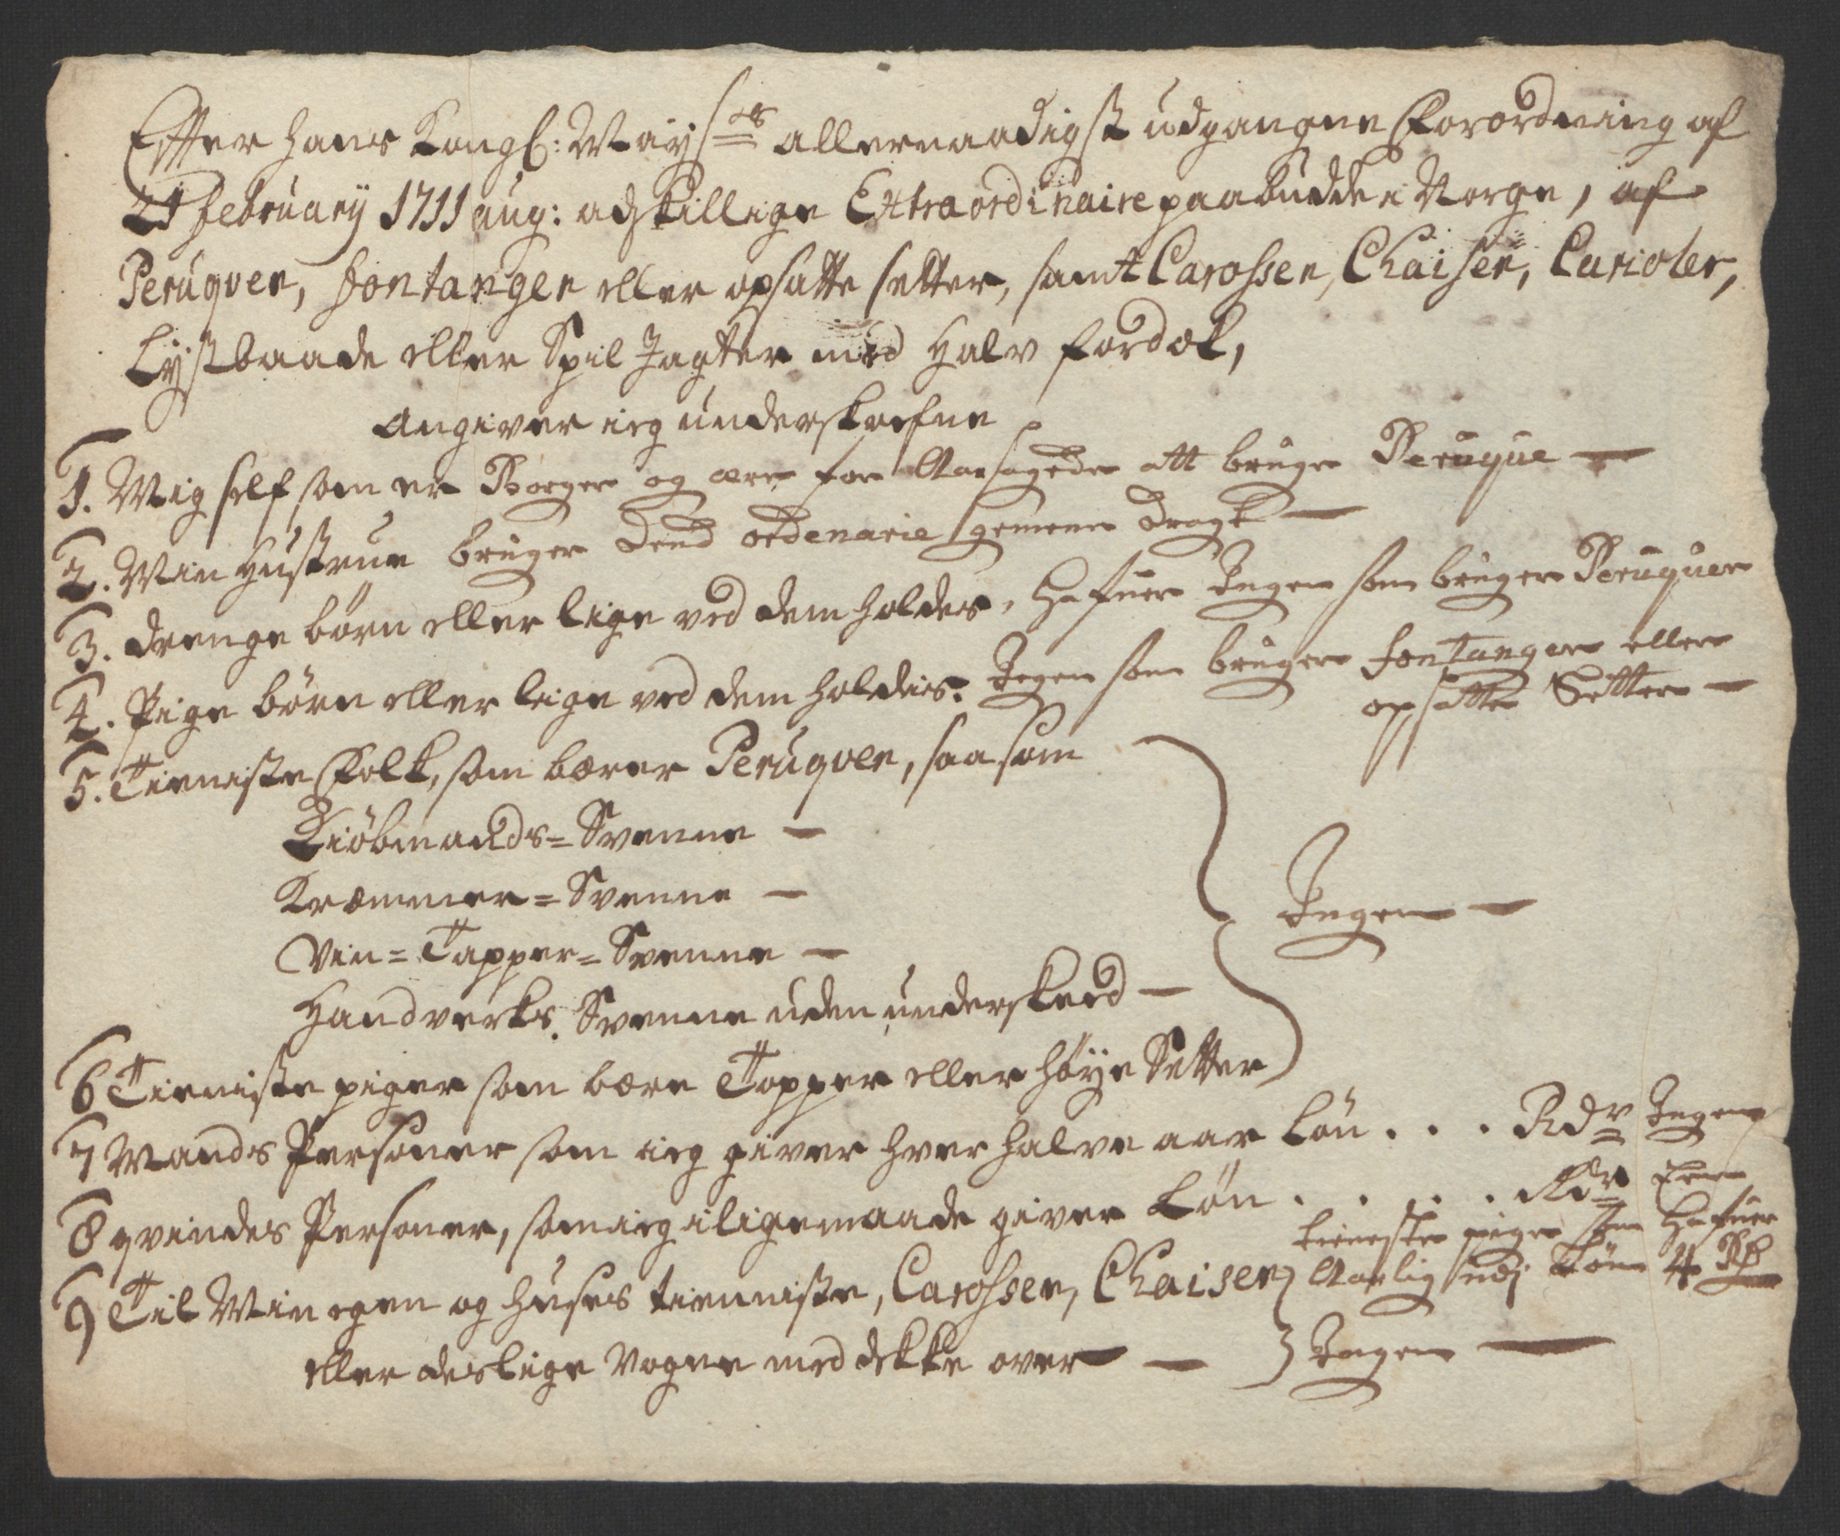 Efter hans Kongl: Mayst: ts allernaadigst udgangne Forordning af
21 february 1711 ang: adskillige Extraordinaire paabudde i Norge, af
Peruqver, fontanger eller opsatte setter, samt Carosser, Chaiser, Carioler,
Lystbaade eller Spil Jagter med Halv fordæk,
Angiver ieg underskrefne
1. Mig self som er Borger og ære for Aarsagede att bruge Peruque —
2. Min Hustrue bruger Dend ordenarie gemene Dragt —
3. drenge børn eller lige ved dem holdes, Hafuer Ingen som bruger Peruquer
4. Pige børn eller lige ved dem holdes. Ingen som bruger fontanger eller
opsatte Setter —
5. Tieniste Folk, som bærer Peruqver, saasom
Kiøbmands= Svenne —
Kræmmer= Svenne —
Vin= Tapper= Svenne —
Handverks. Svenne uden underskeed —
Ingen —
6 Tieniste piger som bære Topper eller høye Setter
7 Mands Personer som ieg giver hver halve aar Løn . . . Rdr Ingen
8 qvindes Personer, som ieg iligemaade giver Løn . . . . . Rdr Een
tieneste pige som Hafuer
Aarlig Løn 4 Rd
9 Til Min egen og huses tienniste, Carosser, Chaiser
eller deslige Vogne med dekke over — Ingen —